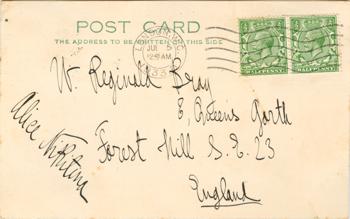 POST CARD
THE ADDRESS TO BE WRITTEN ON THIS SIDE
JUL 5
1933
HALFPENNY
HALFPENNY
W. Reginald Bray
8, Queens Garth
Forest Hill S.E. 23
England
Alice